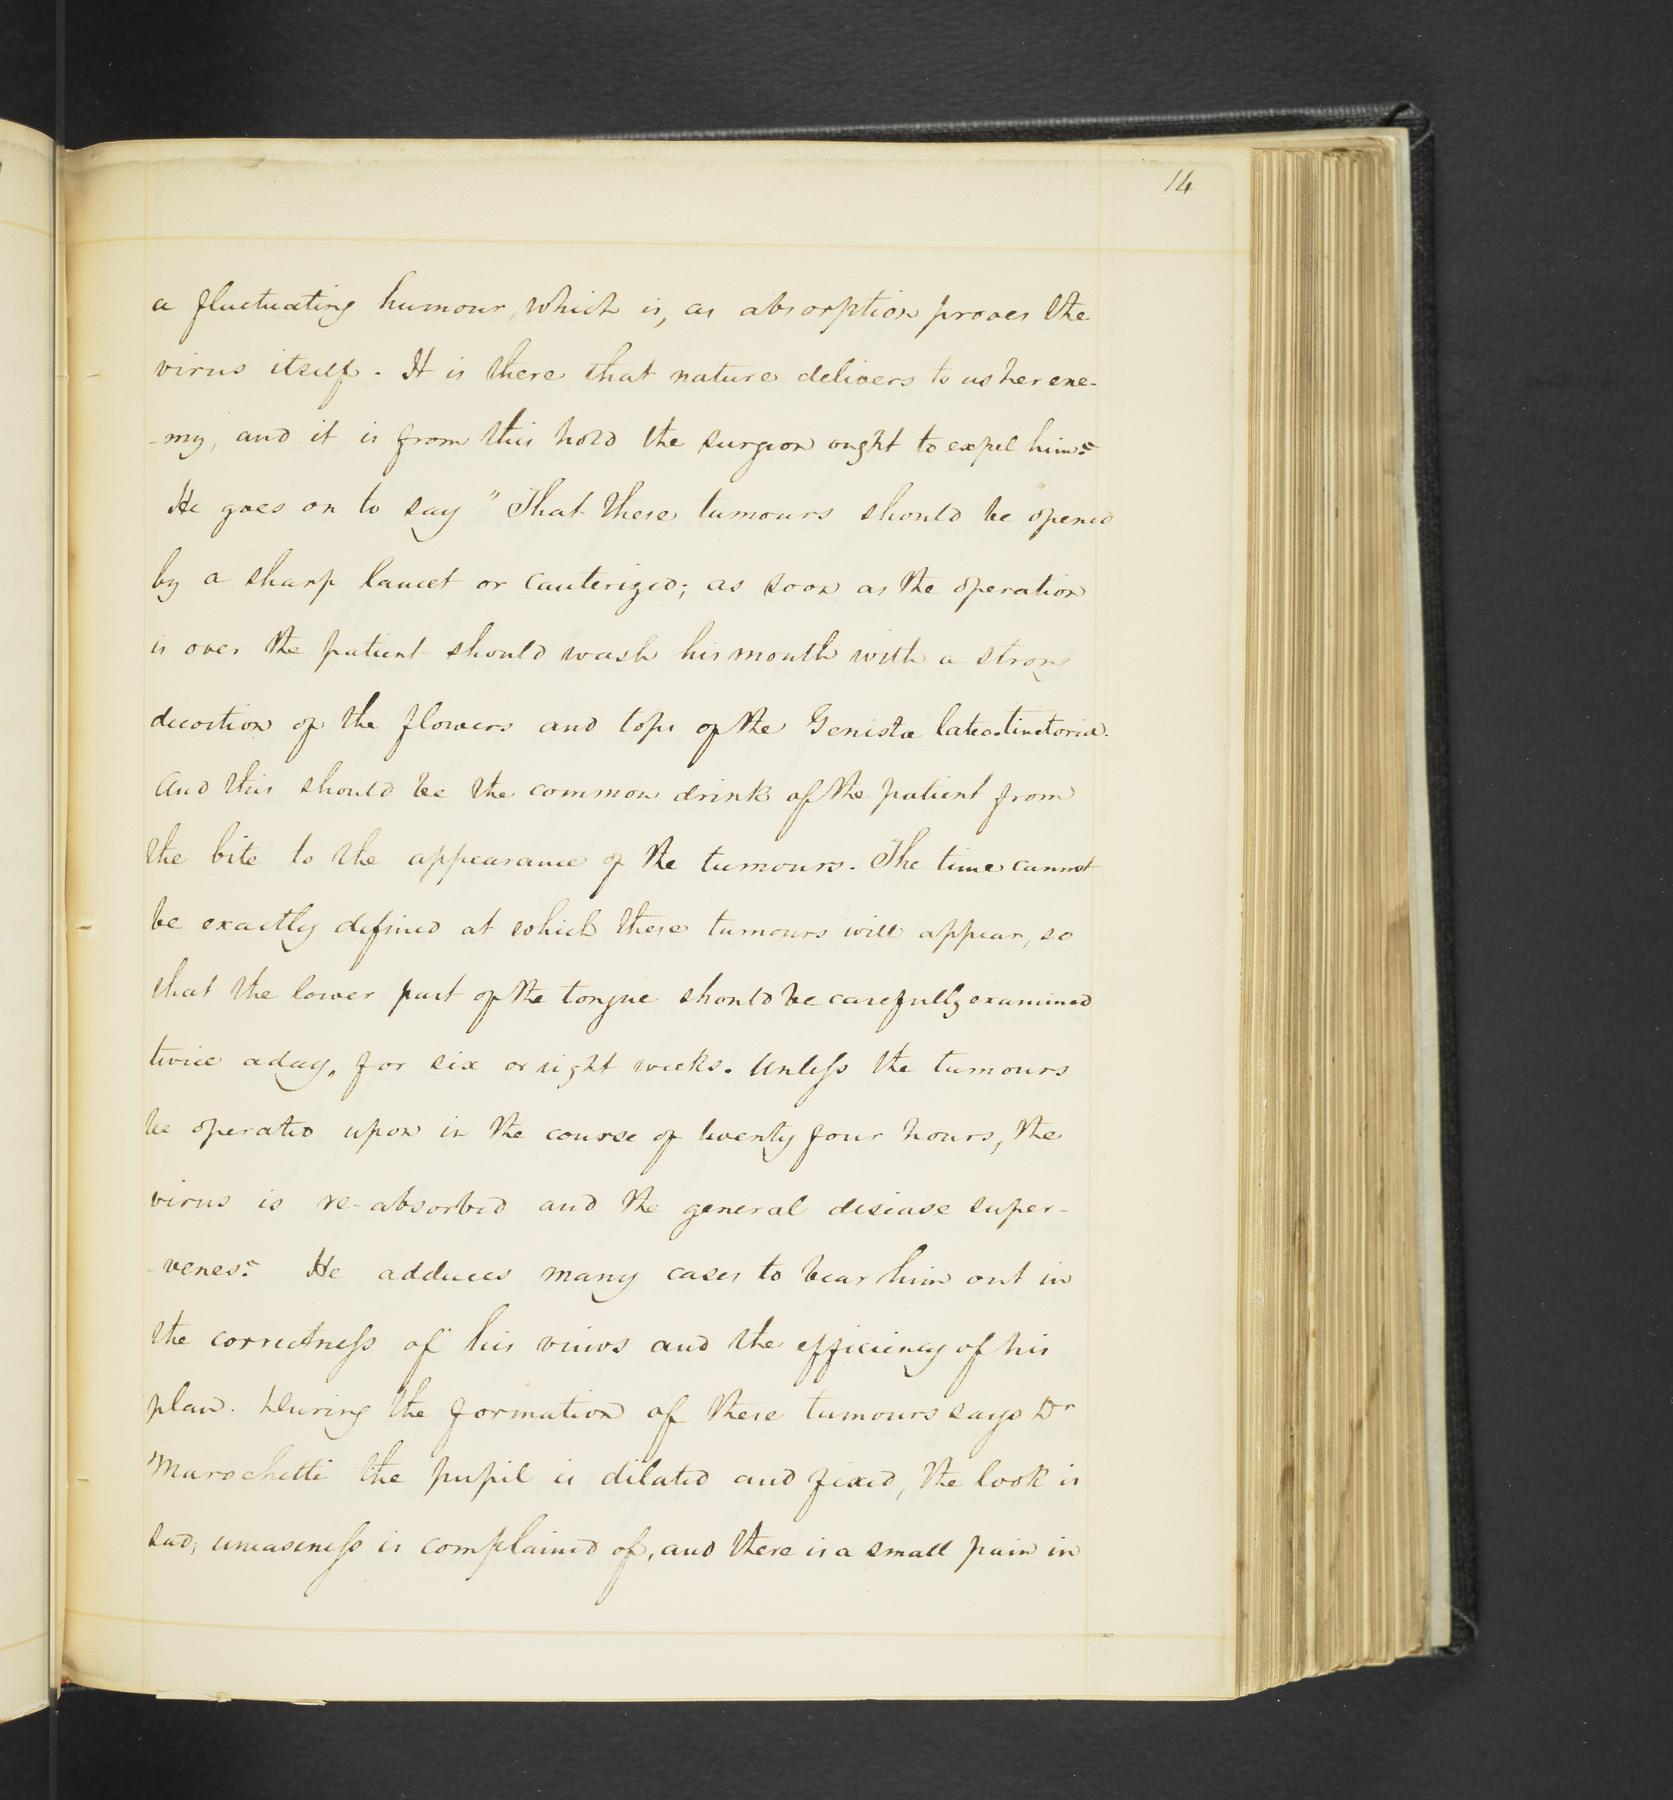 14
a fluctuating humour, which is, as absorption proves the
virus itself. It is there that nature delivers to us her ene-
-my, and it is from this hold the surgeon ought to expel him."
He goes on to say "That these tumours should be opened
by a sharp lancet or cauterized; as soon as the operation
is over the patient should wash his mouth with a strong
decoction of the flowers and tops of the Genistæ luteo tinctoria.
And this should be the common drink of the patient from
the bite to the appearance of the tumours. The time cannot
be exactly defined at which these tumours will appear, so
that the lower part of the tongue should be carefully examined
twice a day, for six or eight weeks. Unless the tumours
be operated upon in the course of twenty four hours, the
virus is re-absorbed and the general disease super-
-venes." He adduces many cases to bear him out in
the correctness of his views and the efficiency of his
plan. During the formation of these tumours says Dr
Marochetti the pupil is dilated and fixed, the look is
sad, uneasiness is complained of, and there is a small pain in